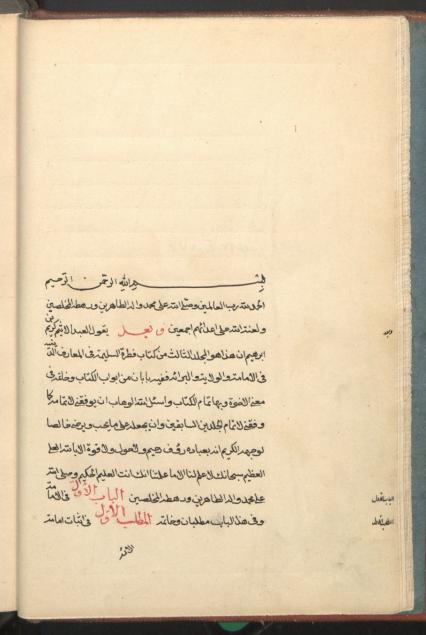 بسم الله الرحمن الرحيم
الحمد لله رب العالمين وصلى الله على محمد واله الطاهرين ورهطه المخلصين
ولعنة الله على اعدائهم اجمعين وبعد يقول العبد الاثيم كريم بن
ابرهيم ان هذا هو المجلد الثالث من كتاب فطرة السليمة في المعارف
في الامامة والولاية والبرائة ففيه بابان من ابواب الكتاب وخاتمة في
معنى الاخوة وبها تمام الكتاب واسئل الله الوهاب ان يوفقني لاتمامه كما
وفقني لاتمام المجلدين السابقين وان يجعله على ما يحب ويرضى خالصا
لوجهه الكريم انه بعباده رؤف رحيم ولا حول ولا قوة الا بالله العلي
العظيم سبحانك لا علم لنا الا ما علمتنا انك انت العليم الحكيم وصلى الله
على محمد واله الطاهرين ورهطه المخلصين الباب الاول في الامامة
وفي هذا الباب مطلبان وخاتمة المطلب الاول في اثبات امامة
الائمة
وبعد
الباب الاول
المطلب الاول